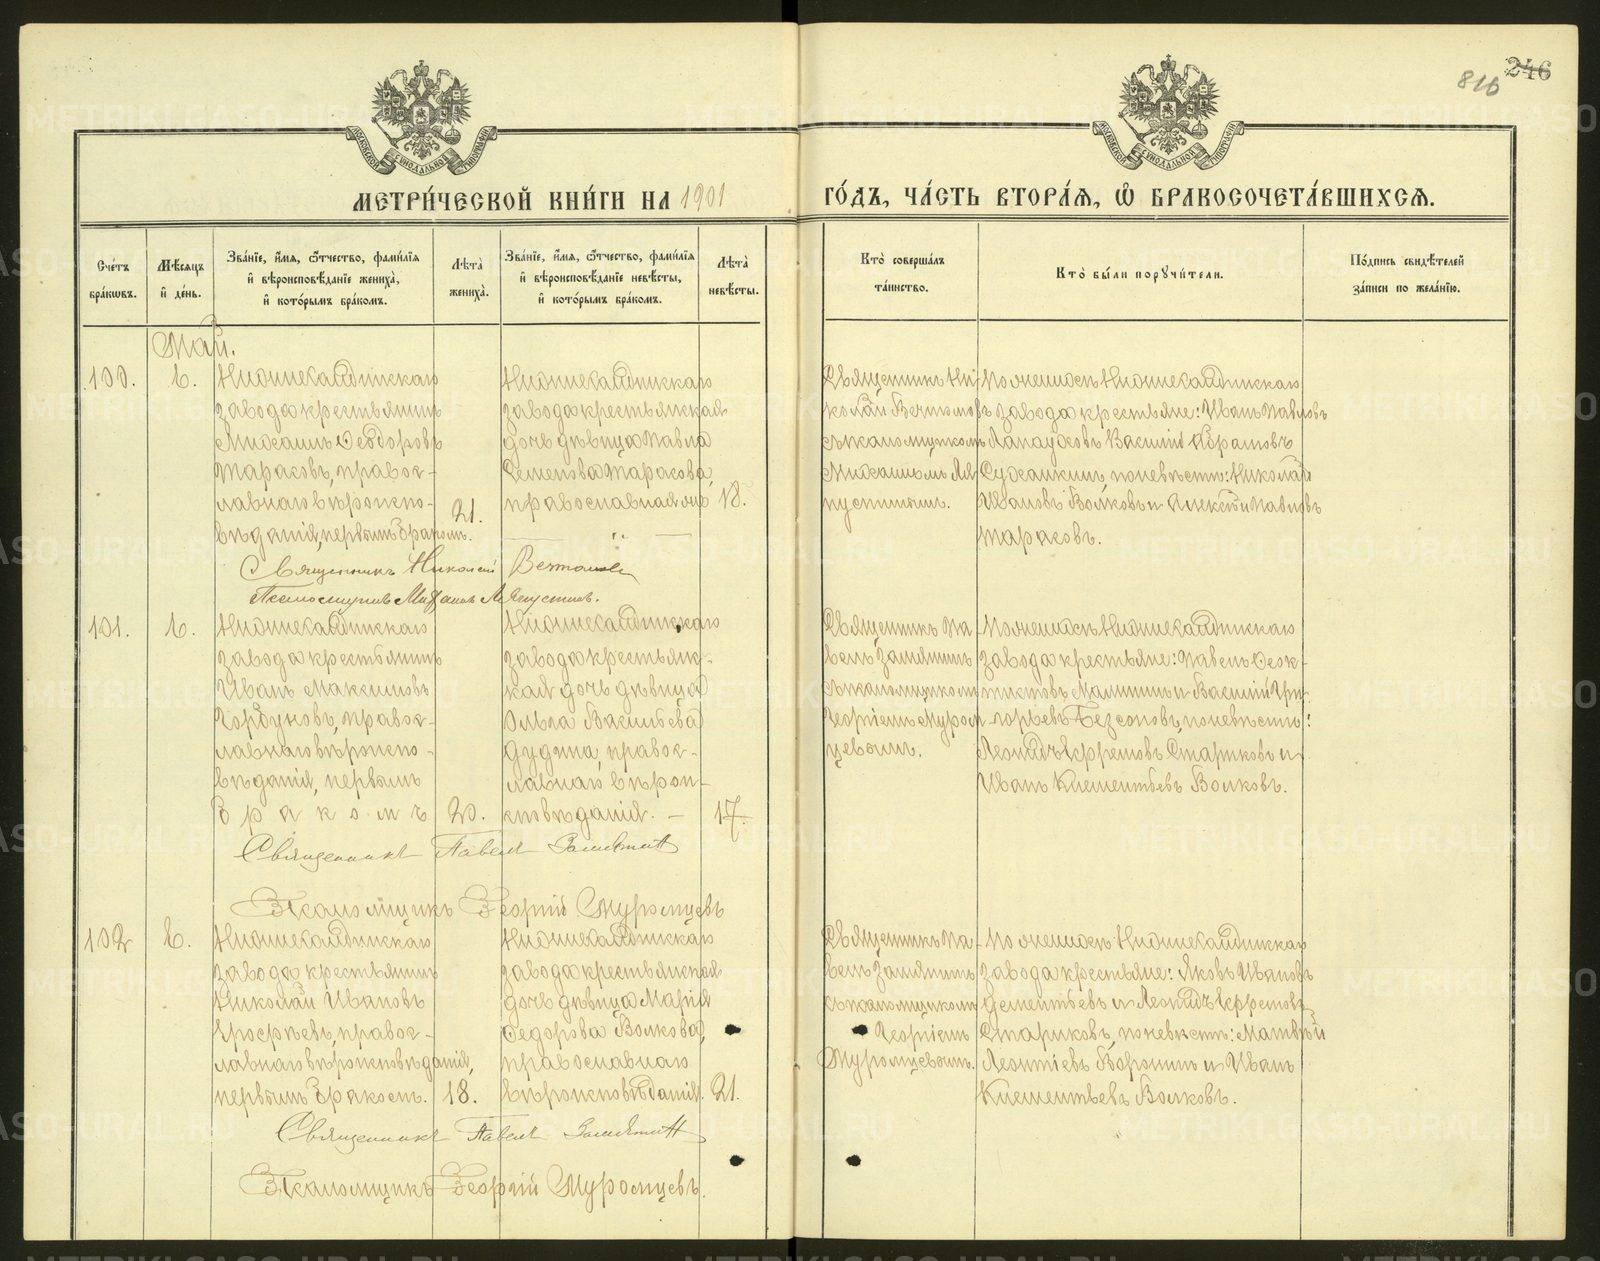 246
816
МЕТРИ́ЧЕСКОЙ КНИ́ГИ НА 1901
ГО́ДЪ, ЧА́СТЬ ВТОРА́Я, Ѽ БРАКОСОЧЕТА́ВШИХСЯ.
Сче́тъ бра́кѡвъ.
Мѣ́сяцъ и҆ де́нь.
Зва́нїе, и҆́мя, ѻ҆́тчество, фами́лїя и҆ вѣроисповѣ́данїе жениха̀, и҆ кото́рымъ бра́комъ.
Лѣта̀ жениха̀.
Зва́нїе, и҆́мя, ѻ҆́тчество, фами́лїя и҆ вѣроисповѣ́данїе невѣ́сты, и҆ кото́рымъ бра́комъ.
Лѣта̀ невѣ́сты.
Кто̀ соверша́лъ та́инство.
Кто̀ бы́ли порꙋчи́тели.
По́дпись свидѣ́телей за́писи по жела́нїю.
Май.
100.
6.
Нижнесалдинскаго
завода крестьянинъ
Михаилъ Ѳеодоровъ
Тарасовъ, правос-
лавнаго вѣроиспо-
вѣданія, первымъ бракомъ.
21.
Нижнесалдинскаго
завода крестьянская
дочь дѣвица Павла
Семенова Тарасова,
православная
18.
Священникъ Ни-
колай
съ псаломщикомъ
Михаиломъ Ля-
пустинымъ.
По женихѣ: Нижнесалдинскаго
завода крестьяне: Иванъ Павловъ
Василій Абрамовъ
по невѣстѣ: Николай
Ивановъ Волковъ и Алексѣй Павловъ
Тарасовъ.
Священникъ Николай
Псаломщикъ Михаилъ Ляпустинъ.
101.
6.
Нижнесалдинскаго
завода крестьянинъ
Иванъ Максимовъ
Горбуновъ, правос-
лавнаго вѣроиспо-
вѣданія, первымъ
бракомъ
20.
Нижнесалдинскаго
завода крестьянс-
кая дочь дѣвица
Ольга Васильева
Дудина, правос-
лавнаго вѣрои-
споведанія. –
17.
Священникъ Па-
велъ Замятинъ
съ псаломщикомъ
Георгіемъ Муром-
цевымъ.
По женихѣ: Нижнесалдинскаго
завода крестьяне: Павелъ Ѳеок-
тистовъ Малининъ и Василій Гри-
горьевъ Безсоновъ, по невѣстѣ:
Леонидъ Ефремовъ Стариковъ и
Иванъ Клементьевъ Волковъ.
Священникъ Павелъ Замятинъ
Псаломщикъ Георгій Муромцевъ
102
6.
Нижнесалдинскаго
завода крестьянинъ
Николай Ивановъ
Ерофѣевъ, правос-
лавнаго вѣроисповѣданія,
первымъ бракомъ.
18.
Нижнесалдинскаго
завода крестьянская
дочь дѣвица Марія
Ѳедорова Волкова,
православнаго
вѣроисповѣданія.
21.
Священникъ Па-
велъ Замятинъ
съ псаломщикомъ
Георгіемъ
Муромцевымъ.
По женихѣ: Нижнесалдинскаго
завода крестьяне: Яковъ Ивановъ
Дементьевъ и Леонидъ Ефремовъ
Стариковъ, по невѣстѣ: Матвѣй
Леонтіевъ Воронинъ и Иванъ
Клементьевъ Волковъ.
Священникъ Павелъ Замятинъ
Псаломщикъ Георгій Муромцевъ.